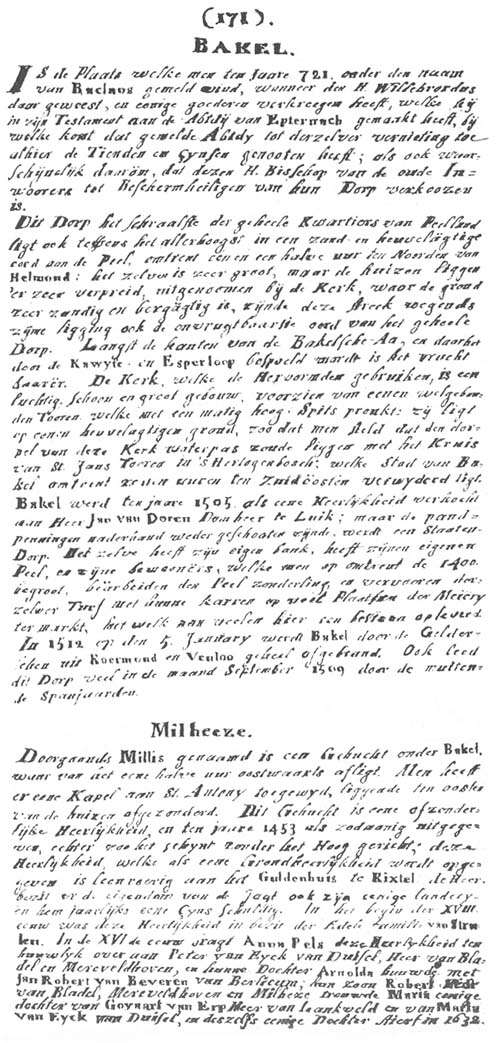 (171).
BAKEL.
IS de Plaats welke men ten Jaare 721. onder den naam
van Baclaos gemeld vind, wanneer den H. Willebrordus
daar geweest, en eenige goederen verkreegen heeft, welke hij
in zijn Testament aan de Abtdij van Epternach gemaakt heeft, bij
welke komt dat gemelde Abtdy tot derzelver vernieling toe
alhier de Tienden en Cynsen genooten heeft; als ook waar-
schijnelijk daaröm, dat dezen H. Bisschop van de oude In-
wooners tot Beschermheiligen van hun Dorp verkoozen
is.
Dit Dorp het schraalste der geheele Kwartiers van Peelland
ligt ook teffens het allerhoogst in een zand en heuvelagtige
oord aan de Peel, omtrent een en een halve uur ten Noorden van
Helmond: het zelve is zeer groot, maar de huizen liggen
'er zeer verspreid, uitgenomen bij de Kerk, waar de grond
zeer zandig en bergagtig is, zijnde deze streek wegends
zijne ligging ook de onvrugtbaarste oord van het geheele
Dorp. Langst de kanten van de Bakelsche-Aa, en daarbij
door de Kawyte en Esperloop bespoeld wordt is het vrucht
baarër. De Kerk, welke de Hervormden gebruiken, is een
luchtig, schoon en groot gebouw, voorzien van eenen welgebou-
den Tooren, welke met een matig hoog Spits pronkt: zij ligt
op eenen heuvelagtigen grond, zoo dat men steld dat den dor-
pel van deze Kerk waterpas zoude liggen met het Kruis
van St. Jans Tooren in 's Hertogenbosch; welke Stad van Ba-
kel omtrent zeven uuren ten Zuidöosten verwyderd ligt.
Bakel werd ten jaare 1505. als eene Heerlijkheid verkocht
aan Heer Jan van Doren Domheer te Luik; maar de pand-
penningen naderhand weder geschooten zijnde, werdt een Staaten-
Dorp. Het zelve heeft zijn eigen bank, heeft zijnen eigenen
Peel, en zijne bewooners, welke men op omtrent de 1400.
begroot, beärbeiden den Peel zonderling, en vervoeren der-
zelver Turf met hunne karren op veel Plaatsen der Meiery
ter markt, het welk aan veelen hier een bestaan opleverd.
In 1512 op den 5. January werdt Bakel door de Gelder-
schen uit Roermond en Venloo geheel afgebrand. Ook leed
dit Dorp veel in de maand September 1599 door de muiten-
de Spanjaarden.
Milheeze.
Doorgaands Millis genaamd is een Gehucht onder Bakel,
waar van het eene halve uur oostwaarts afligt. Men heeft
er eene Kapel aan St. Anteny toegewyd, liggende ten oosten
van de huizen afgezonderd. Dit Gehucht is eene afzonder-
lijke Heerlijkheid, en ten jaare 1453 als zodaanig uitgege-
ven, echter zoo het schynt zonder het Hoog gericht; deze
Heerlykheid, welke als eene Grondheerlijkheid wordt opge-
geven is leenroerig aan het Guldenhuis te Rixtel de Heer
bezit er d' eigendom van de Jagt ook zijn eenige landery-
en hem jaarlijks eene Cyns schuldig. In het begin der XVIII
eeuw was deze Heerlijkheid in bezit der Edele familie van
In de XVI de eeuw bragt Anna Pels deze Heerlykheid ten
huuwlyk over aan Peter van Eyck van Duifel, Heer van Bla-
del en Mereveldhoven, en hunne Dochter Arnolda huuwde met
Jan Robert van Beveren van Berlecum; hun zoon Robert Heer
van Bladel, Mereveldhoven en Milheze trouwde Maria eenige
dochter van Govaart van Erp Heer van Laankveld en van Maria
van Eyck van Duifel, en deszelfs eenige Dochter stierf in 1632.